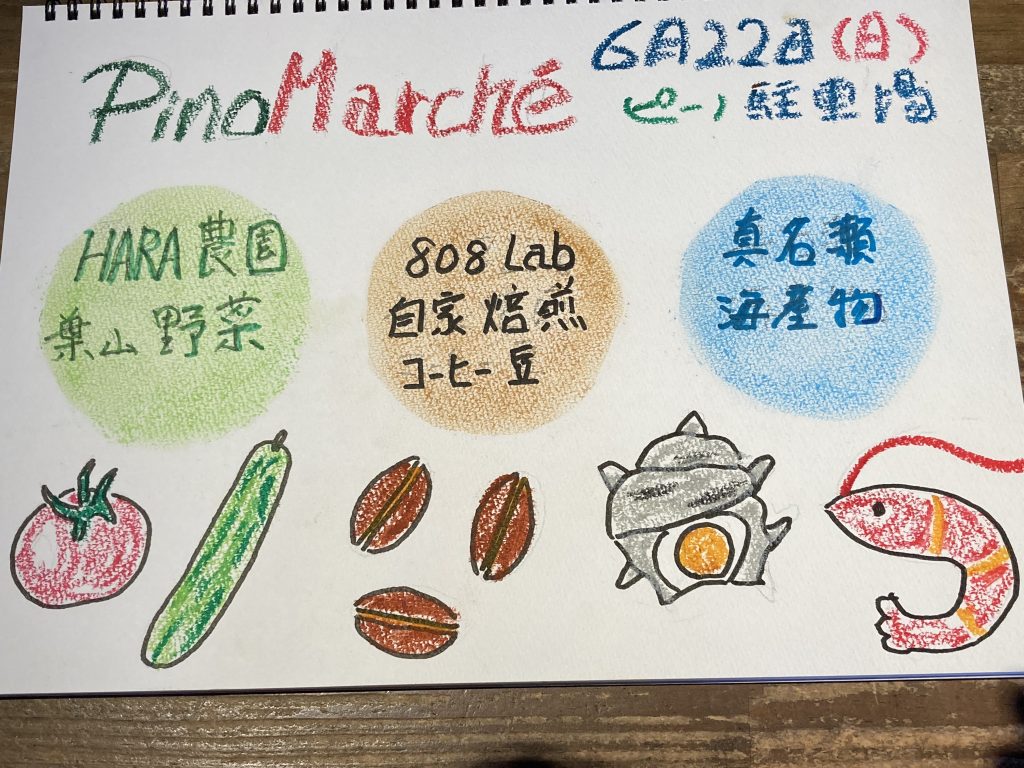 Pino Marché
6月22日(日)
(ピーノ)駐車場
HARA農園
葉山野菜
808 Lab
自家焙煎
コーヒー豆
真名瀬
海産物